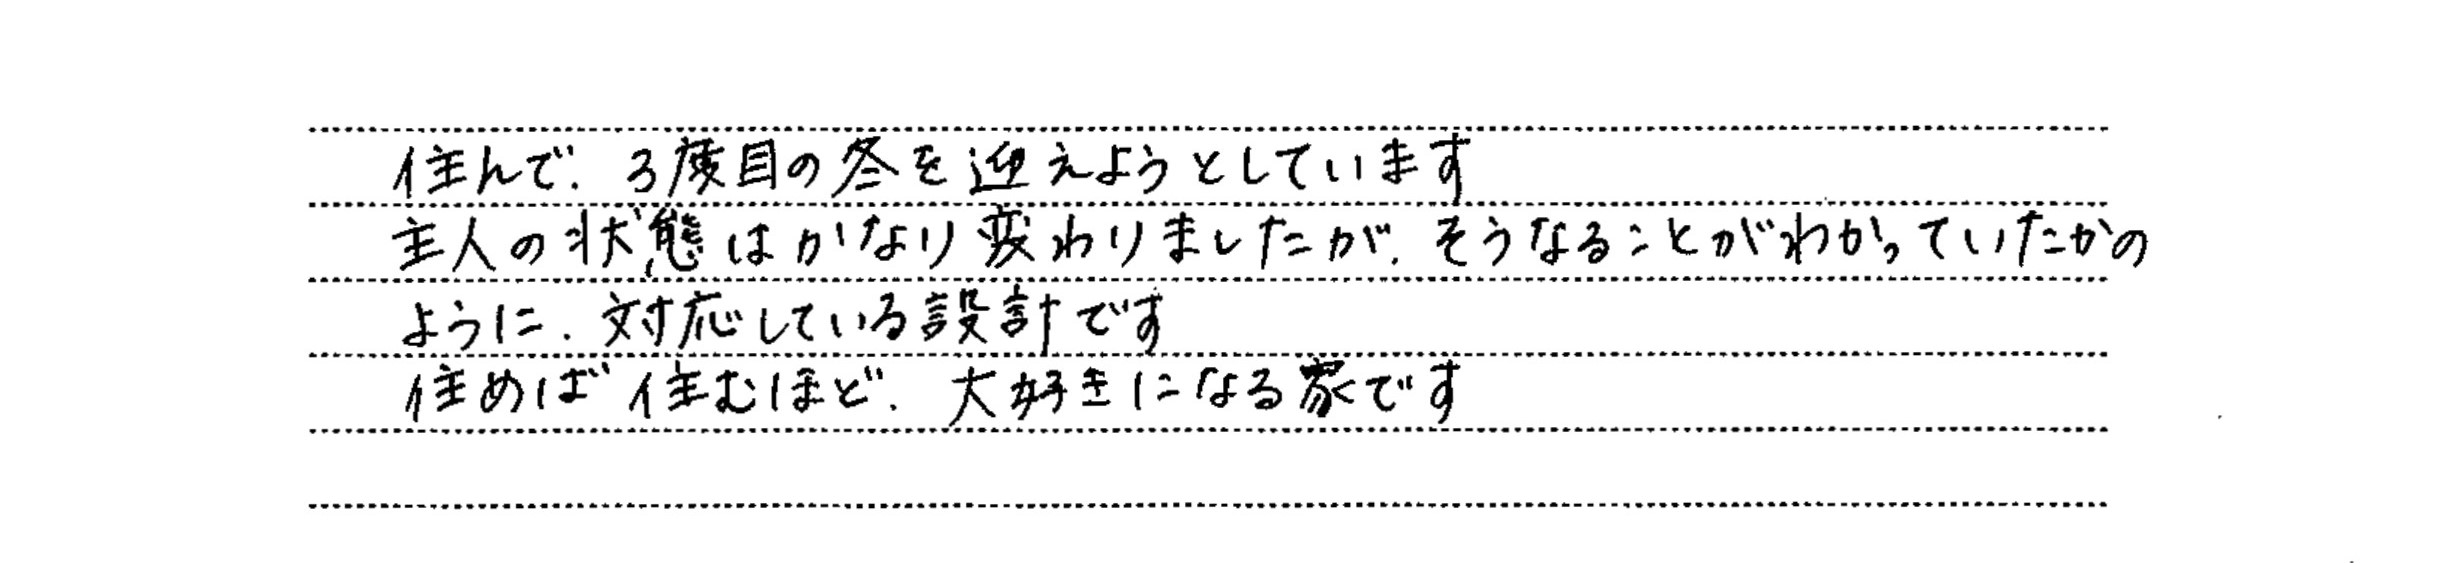 住んで、3度目の冬を迎えようとしています
主人の状態はかなり変わりましたが、そうなることがわかっていたかの
ように、対応している設計です
住めば住むほど、大好きになる家です